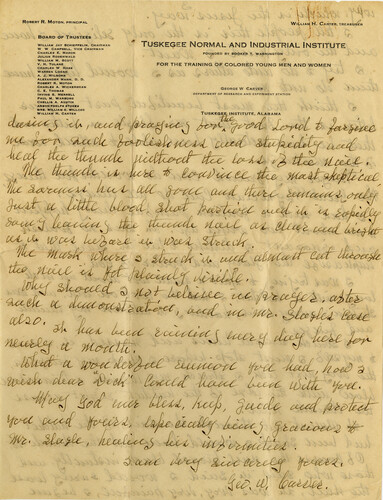 Robert R. Moton, Principal
William H. Carter, Treasurer
Board of Trustees
William Jay Schieffelin, Chairman
W. W. Campbell, Vice Chairman
Charles E. Mason
Julius Rosenwald
William M. Scott
Warren Logan
A. J. Wilborn
Alexander Mann, D. D.
Robert R. Moton
Charles A. Wickersham
G. S. Thomas
Irving S. Merrell
Paul M. Warburg
William H. Carter
Tuskegee Normal and Industrial Institute
Founded by Booker T. Washington
For the Training of Colored Young Men and Women
George W. Carver
Department of Research and Experiment Station
Tuskegee Institute, Alabama
during it, and praying our good Lord to forgive
me for such foolishness and stupidity and
heal the thumb without the loss of the nail.
The thumb is here to convince the most skeptical
The soreness has all gone and there remains only
just a little blood that partied and is rapidly
going leaving the thumb nail as clear and bright
as it was before it was struck.
The mark where I struck it and almost cut through
the nail is yet plainly visible.
Why should I not believe in prayer, after
such a demonstration, and in Mr. Slagles case
also.
It has been raining every day here for
nearly a month.
What a wonderful sermon you had, how I
wish dear "Dick" could have been with you.
May God ever bless, keep, guide and protect
you and yours, especially being gracious to
Mr. Slagle, healing his infirmities.
I am very sincerely yours,
Geo. W. Carver.